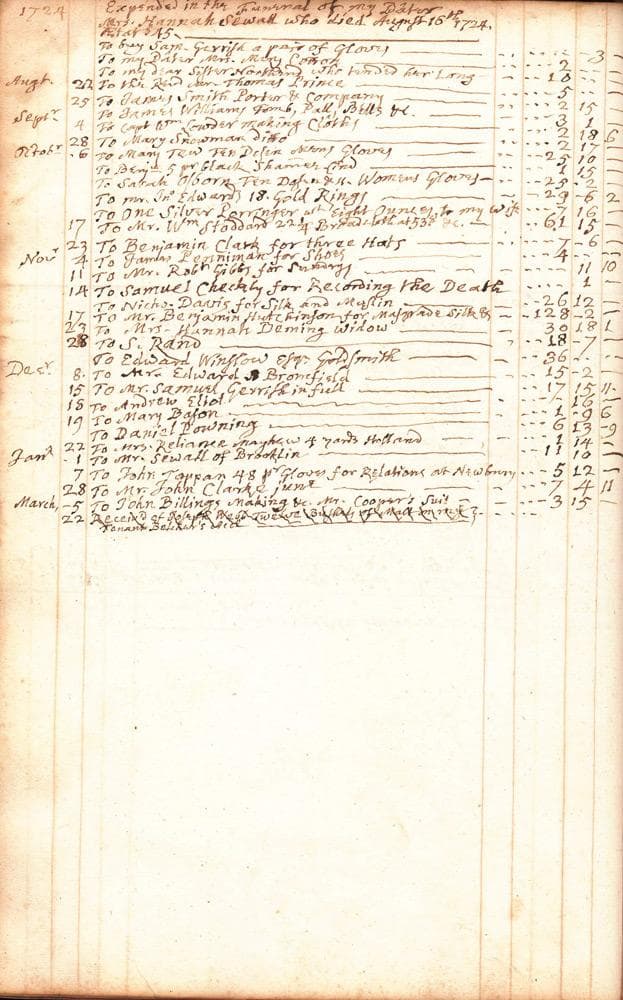 1724 Expended in the Funeral of my Dater
Mrs. Hannah Sewall who died August 16th 1724.
Ætat. 45.
To buy Sam. Gerrish a pair of Gloves -3-
To my Dater Mrs. Mary 2
To my dear Sister Northend who tended her Long 10
Augt. 22 To the Revd Mr. Thomas Prince 5
25 To James Smith Porter & Company 2 15
To James Williams Tomb, Pall, Bells &c. 3 1
Septr 4 To Capt Wm Lowder making Cloths 2 18 6
28 To Mary Snowman ditto 2 17
Octobr 6 To Mary Tew Ten Dozen Mens Gloves 25 10
To Benj. 5 pr black 1 15
To Sarah Oborn Ten Dozen &c. Womens Gloves 25-2-
To mr. Jno Edwards 18. Gold Rings 29-6 2
To One Silver Porringer wt Eight Ounces, to my Wife 7 16
17 To Mr. Wm Stoddard 22¼ Broad-cloth at 55s &c. 61 15
23 To Benjamin Clark for three Hats 7-6
Novr 4 To James Penniman for Shoes 4
11 To Mr. Robt Gibbs for Sundrys 11 10
14 To Samuel Checkly for Recording the Death 1
To Nichos Davis for Silk and Muslin 26 12
17 To Mr. Benjamin Hutchinson for Masquade Silk &c 128-2
23 To Mrs. Hannah Deming Widow 30 18 1
28 To S. Rand 18-7
To Edward Winslow Esqr. Goldsmith 36
Decr. 8. To Mr. Edward Bromfield 15-2
15 To Mr. Samuel Gerrish in full 17 15 11
18 To Andrew Eliot 16
19 To Mary Bason 1-9 6
To Daniel Downing 6 13-9
22 To Mrs. Reliance Mayhew 4 yards Holland 1 14
Janr 1 To Mr Sewall of Brooklin 11 10
7 To John Toppan 48 pr Gloves for Relations at Newbury 5 12
28 To Mr John Clarke junr 7 4 11
March, 5 To John Billings making &c. Mr. Cooper's Suit 3 15
22 Received of Joseph Webb Twelve Bushels of Malt
Tenant Belcher's